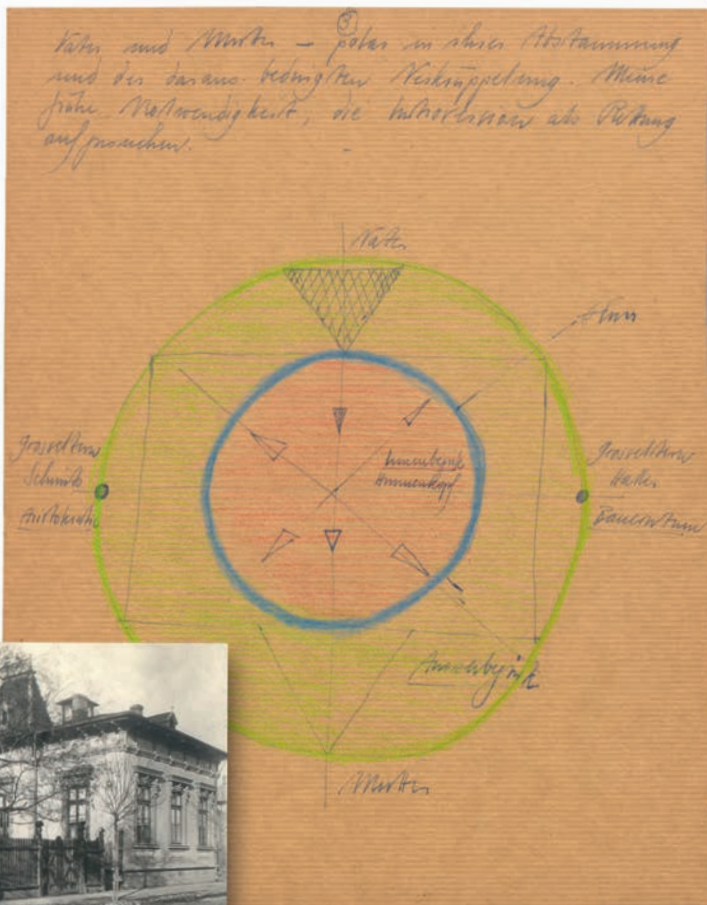 ③
Vater und Mutter – polar in ihrer Abstammung
und der daraus bedingten Verkrüppelung. Meine
frühe Notwendigkeit, die Introversion als Rettung
aufzusuchen.
Vater
Grosseltern
Schmitt
Aristokratie
Innenbezirk
Grosseltern
Haller
Bauerntum
Aussenbezirk
Mutter